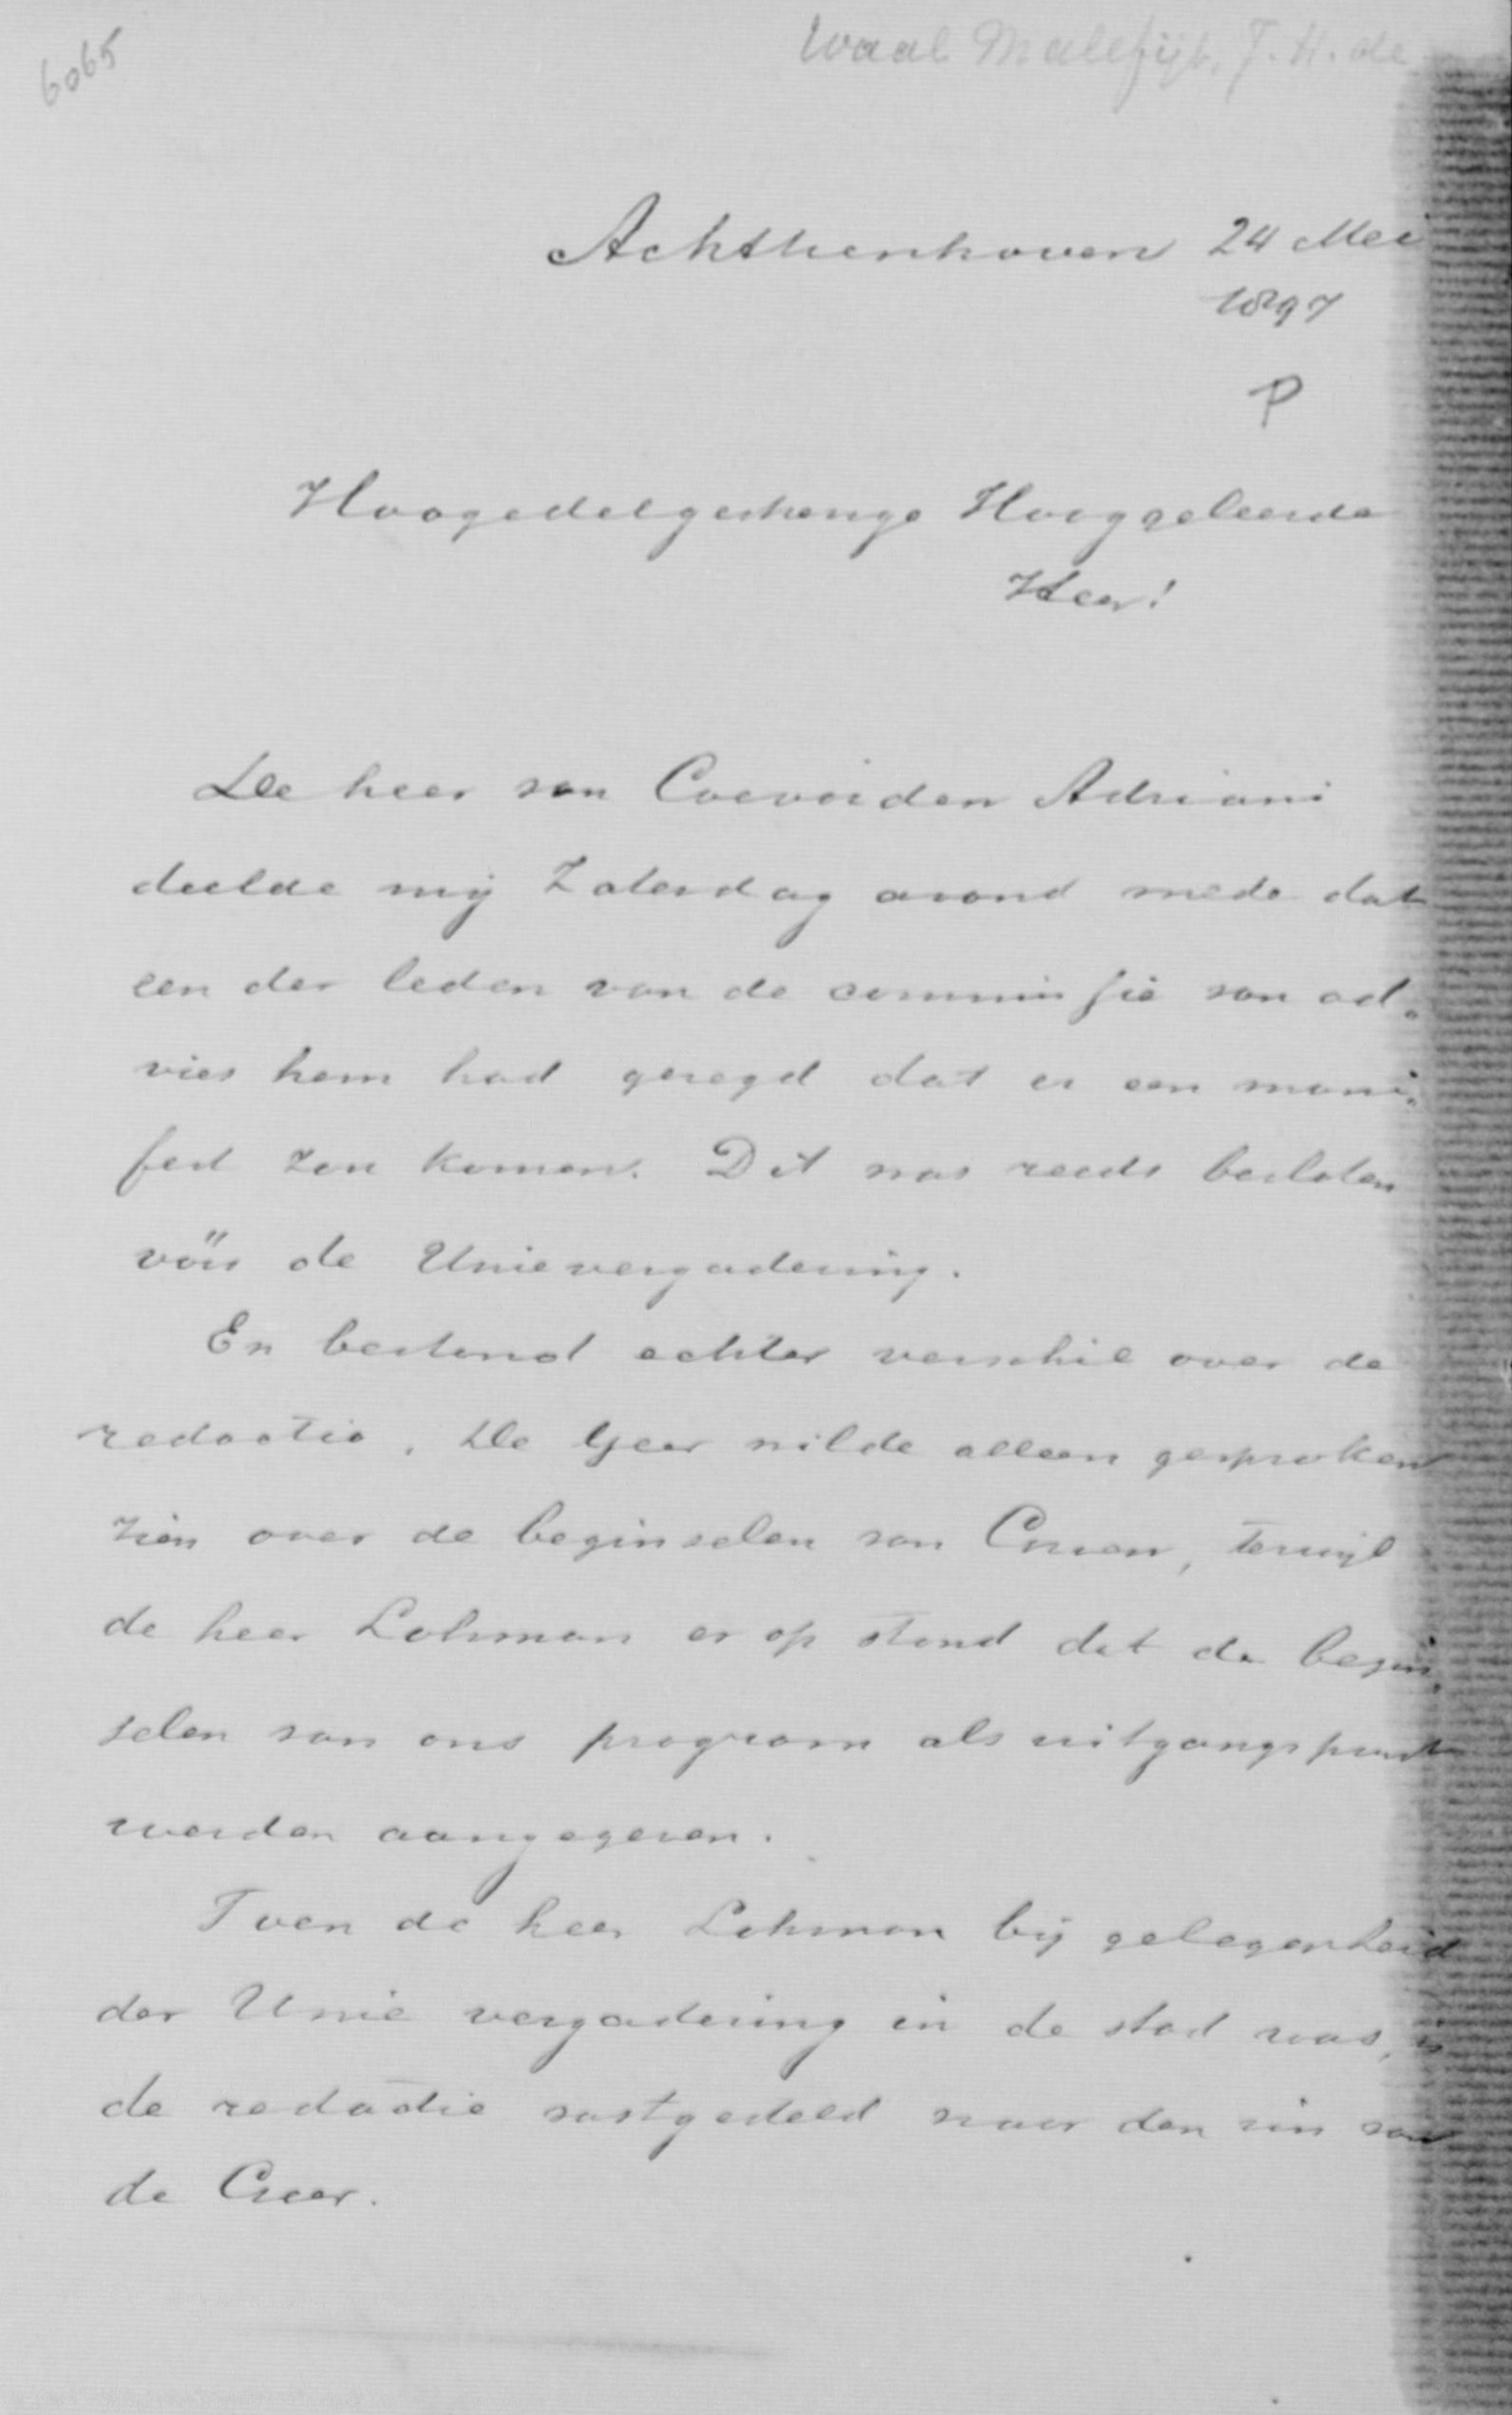 6065
Waal Malefijt, J. H. de
Achthienhoven 24 Mei
1897
P
Hoogedelgestrenge Hooggeleerde
Heer!
De heer van Coevorden Adriani
deelde mij Zaterdag avond mede dat
een der leden van de commissie van ad-
vies hem had gezegd dat er een mani-
fest zou komen. Dit was reeds besloten
vóór de Unievergadering.
Er bestond echter verschil over de
redactie. De Geer wilde alleen gesproken
zien over de beginselen van Groen, terwijl
de heer Lohman er op stond dat de begin-
selen van ons program als uitgangspunt
werden aangegeven.
Toen de heer Lohman bij gelegenheid
der Unie vergadering in de stad was, is
de redactie vastgesteld naar den zin van
de Geer.